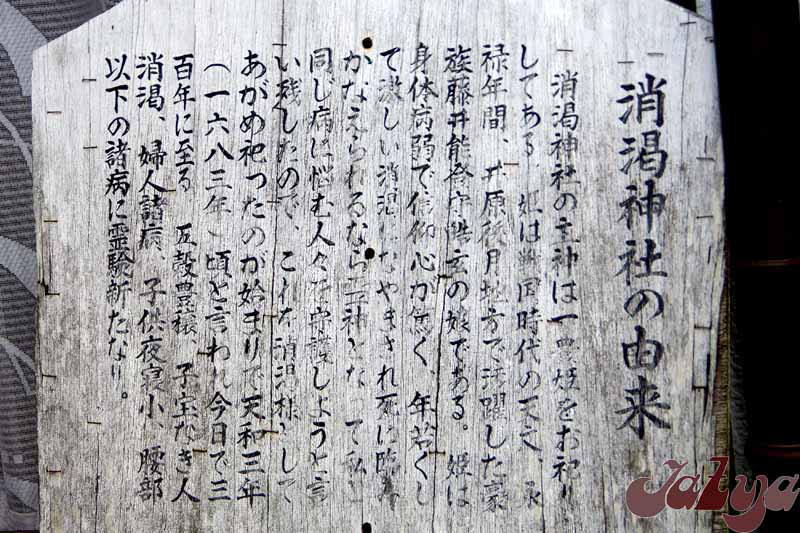 消渇神社の由来
消渇神社の主神は一典姫をお祀り
してある、姫は戦国時代の天文、永
禄年間、井原後月地方で活躍した豪
族藤井能登守皓玄の娘である。姫は
身体病弱で信仰心が篤く、年若くし
て激しい消渇になやまされ死に臨み
かなえられるなら 神となって私と
同じ病に悩む人々を守護しようと言
い残したので、これを消渇様として
あがめ祀ったのが始まりで天和三年
(一六八三年)頃と言われ今日で三
百年に至る 五穀豊穣、子宝なき人
消渇、婦人諸病、子供夜寝小、腰部
以下の諸病に霊験新たなり。
JaLya